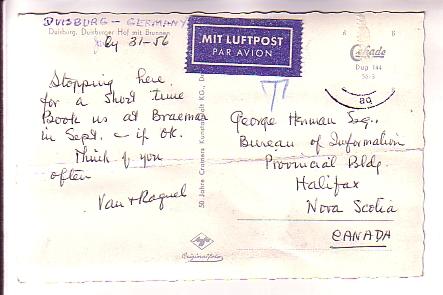 DUISBURG - GERMANY
Duisburg, Duisburger Hof mit Brunnen
July 31-56
MIT LUFTPOST
PAR AVION
Cekade
Dup 144
56/3
Stopping here
for a short time
Book us at Braemar
in Sept. - if OK.
Think of you
often
Van + Raquel
50 Jahre Cramers Kunstanstalt KG., D
T
George Herman Esq.,
Bureau of Information
Provincial Bldg.
Halifax
Nova Scotia
CANADA
Agfa
Originalfoto